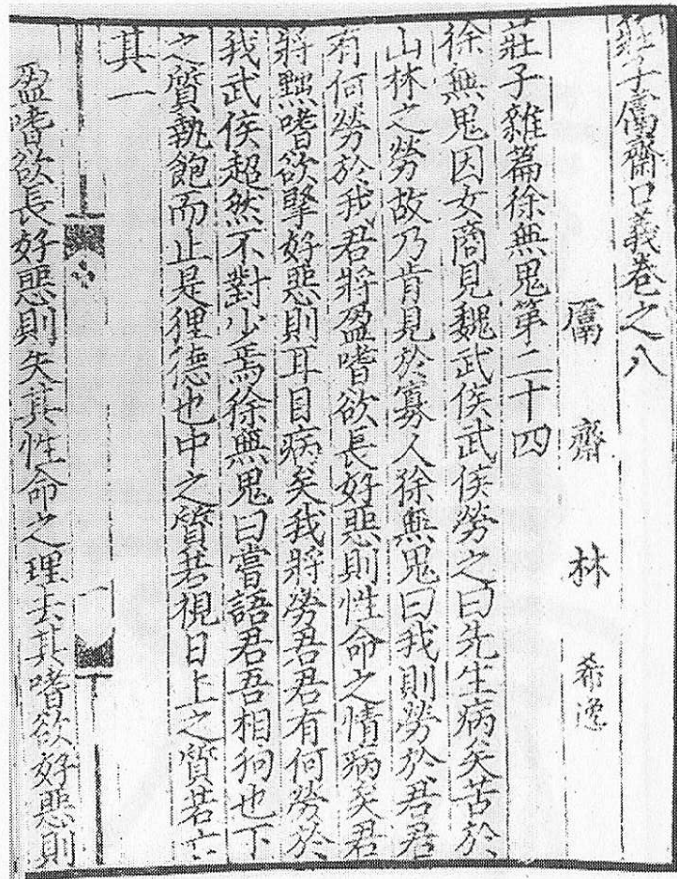 莊子鬳齋口義卷之八
鬳齋林希逸
莊子雜篇徐無鬼第二十四
徐無鬼因女商見魏武侯武侯勞之曰先生病矣苦於
山林之勞故乃肯見於寡人徐無鬼曰我則勞於君君
有何勞於我君將盈嗜欲長好惡則性命之情病矣君
將黜嗜欲掔好惡則耳目病矣我將勞君君有何勞於
我武侯超然不對少焉徐無鬼曰嘗語君吾相狗也下
之質執飽而止是狸德也中之質若視日上之質若亡
其一
盈嗜欲長好惡則失其性命之理去其嗜欲好惡則